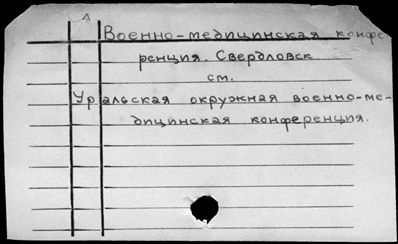 А
Военно-медицинская конфе-
ренция. Свердловск
см.
Уральская окружная военно-ме-
дицинская конференция.